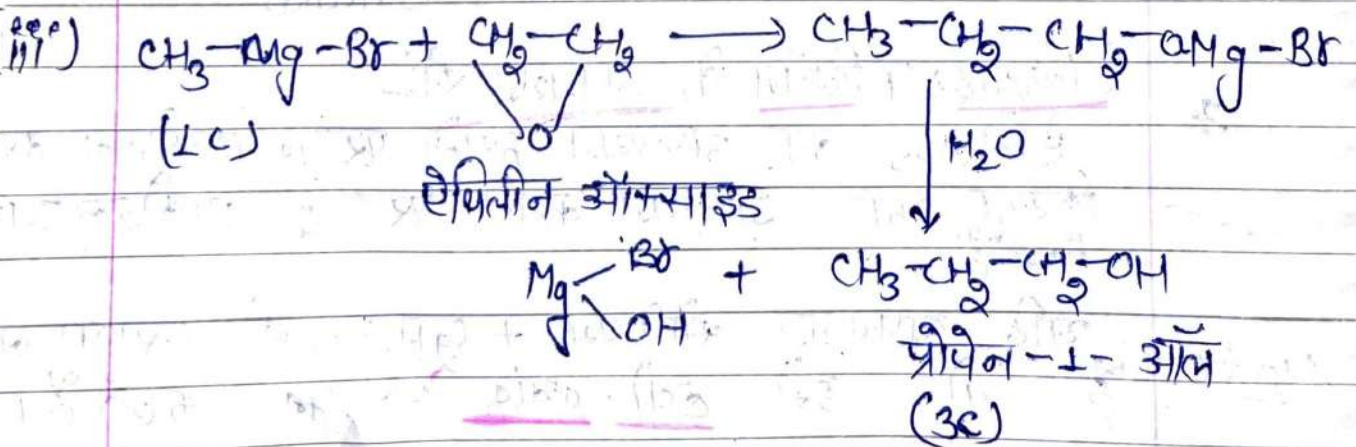 iii) CH₃-Mg-Br + CH₂-CH₂ ⟶ CH₃-CH₂-CH₂-OMg-Br
(1C) O H₂O
ऐथिलीन ऑक्साइड
Mg Br OH + CH₃-CH₂-CH₂-OH
प्रोपेन-1-ऑल
(3C)